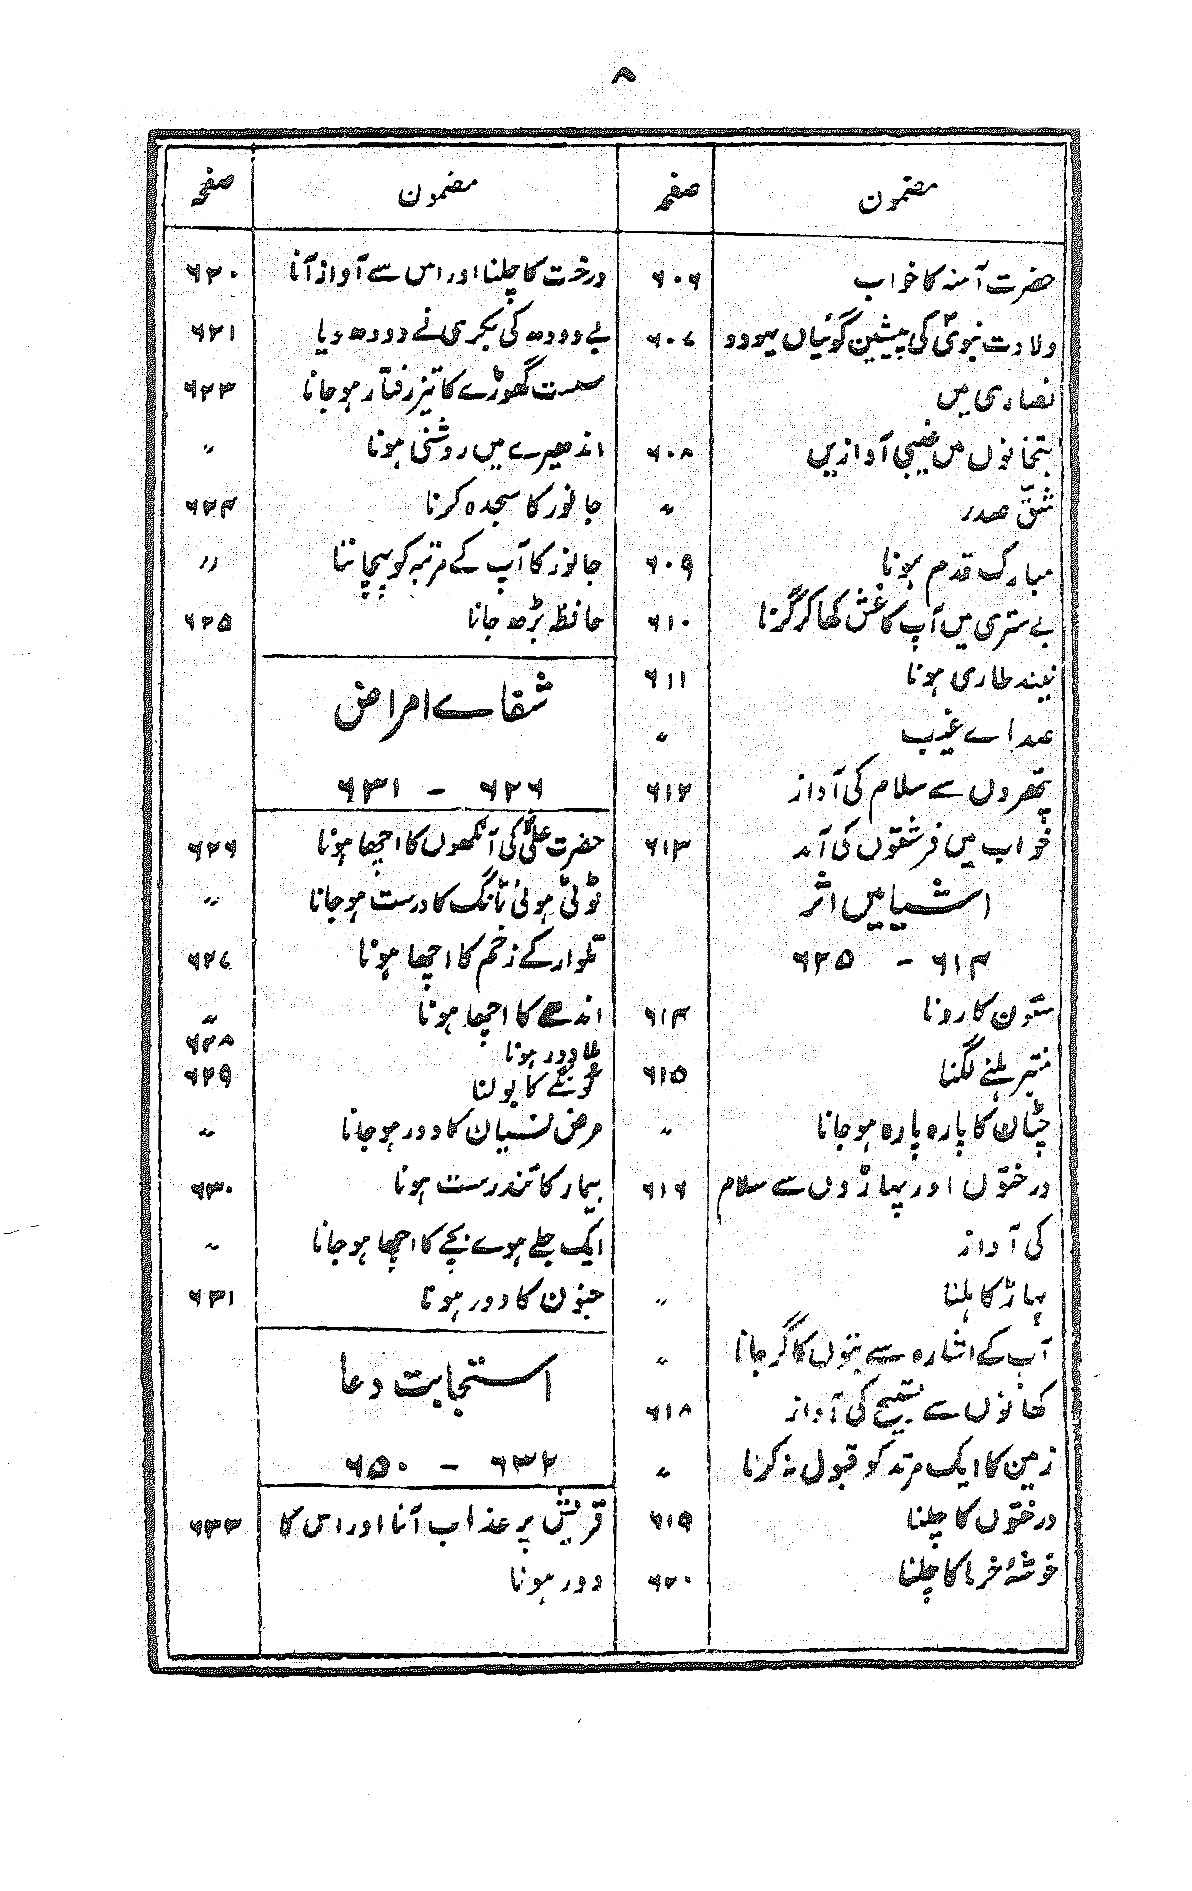 ۸
مضمون صفحہ
حضرت آمنہ کا خواب ۶۰۶
ولادت نبویؐ کی پیشین گوئیاں یہود و ۶۰۷
نصاریٰ میں
بتخانوں میں غیبی آوازیں ۶۰۸
شقّ صدر "
مبارک قدم ہونا ۶۰۹
بے ستری میں آپ کا غش کھا کر گرنا ۶۱۰
نیند طاری ہونا ۶۱۱
صدائے غیب "
پتھروں سے سلام کی آواز ۶۱۲
خواب میں فرشتوں کی آمد ۶۱۳
اشیا میں اثر
۶۱۴ - ۶۲۵
ستون کا رونا ۶۱۴
منبر ہلنے لگنا ۶۱۵
چٹان کا پارہ پارہ ہو جانا "
درختوں اور پہاڑوں سے سلام ۶۱۶
کی آواز
پہاڑ کا ہلنا "
آپ کے اشارہ سے بتوں کا گر جانا "
کھانوں سے تسبیح کی آواز ۶۱۸
زمین کا ایک مرتد کو قبول نہ کرنا "
درختوں کا چلنا ۶۱۹
خوشۂ خرما کا چلنا ۶۲۰
مضمون صفحہ
درخت کا چلنا اور اس سے آواز آنا ۶۲۰
بے دودھ کی بکری نے دودھ دیا ۶۲۱
سست گھوڑے کا تیز رفتار ہو جانا ۶۲۳
اندھیرے میں روشنی ہونا "
جانور کا سجدہ کرنا ۶۲۴
جانور کا آپ کے مرتبہ کو پہچاننا "
حافظہ بڑھ جانا ۶۲۵
شفائے امراض
۶۲۶ - ۶۳۱
حضرت علیؓ کی آنکھوں کا اچھا ہونا ۶۲۶
ٹوٹی ہوئی ٹانگ کا درست ہو جانا "
تلوار کے زخم کا اچھا ہونا ۶۲۷
اندھے کا اچھا ہونا "
بلا دور ہونا ۶۲۸
گونگے کا بولنا ۶۲۹
مرض نسیان کا دور ہو جانا "
بیمار کا تندرست ہونا ۶۳۰
ایک جلے ہوئے بچے کا اچھا ہو جانا "
جنون کا دور ہونا ۶۳۱
استجابت دعا
۶۳۲ - ۶۵۰
قریش پر عذاب آنا اور اس کا ۶۳۳
دور ہونا